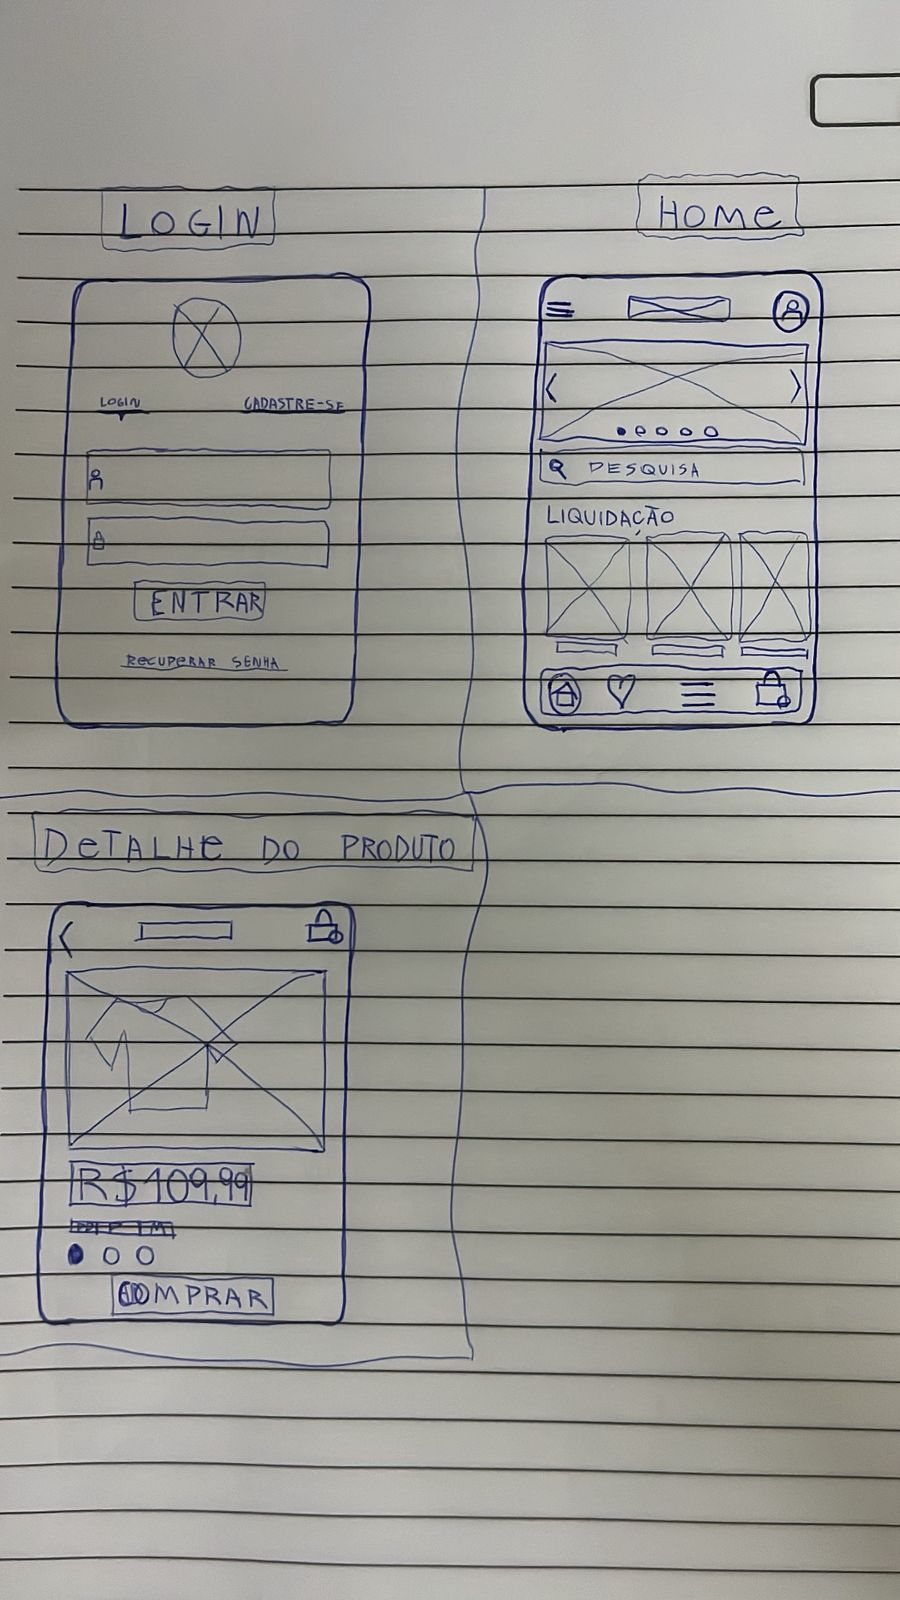 LOGIN
HOMe
LOGIN CADASTRE-SE
ENTRAR
ReCUPeRAR SENHA
PESQUISA
LIQUIDAÇÃO
DeTALHe DO PRODUTO
R$109,99
COMPRAR